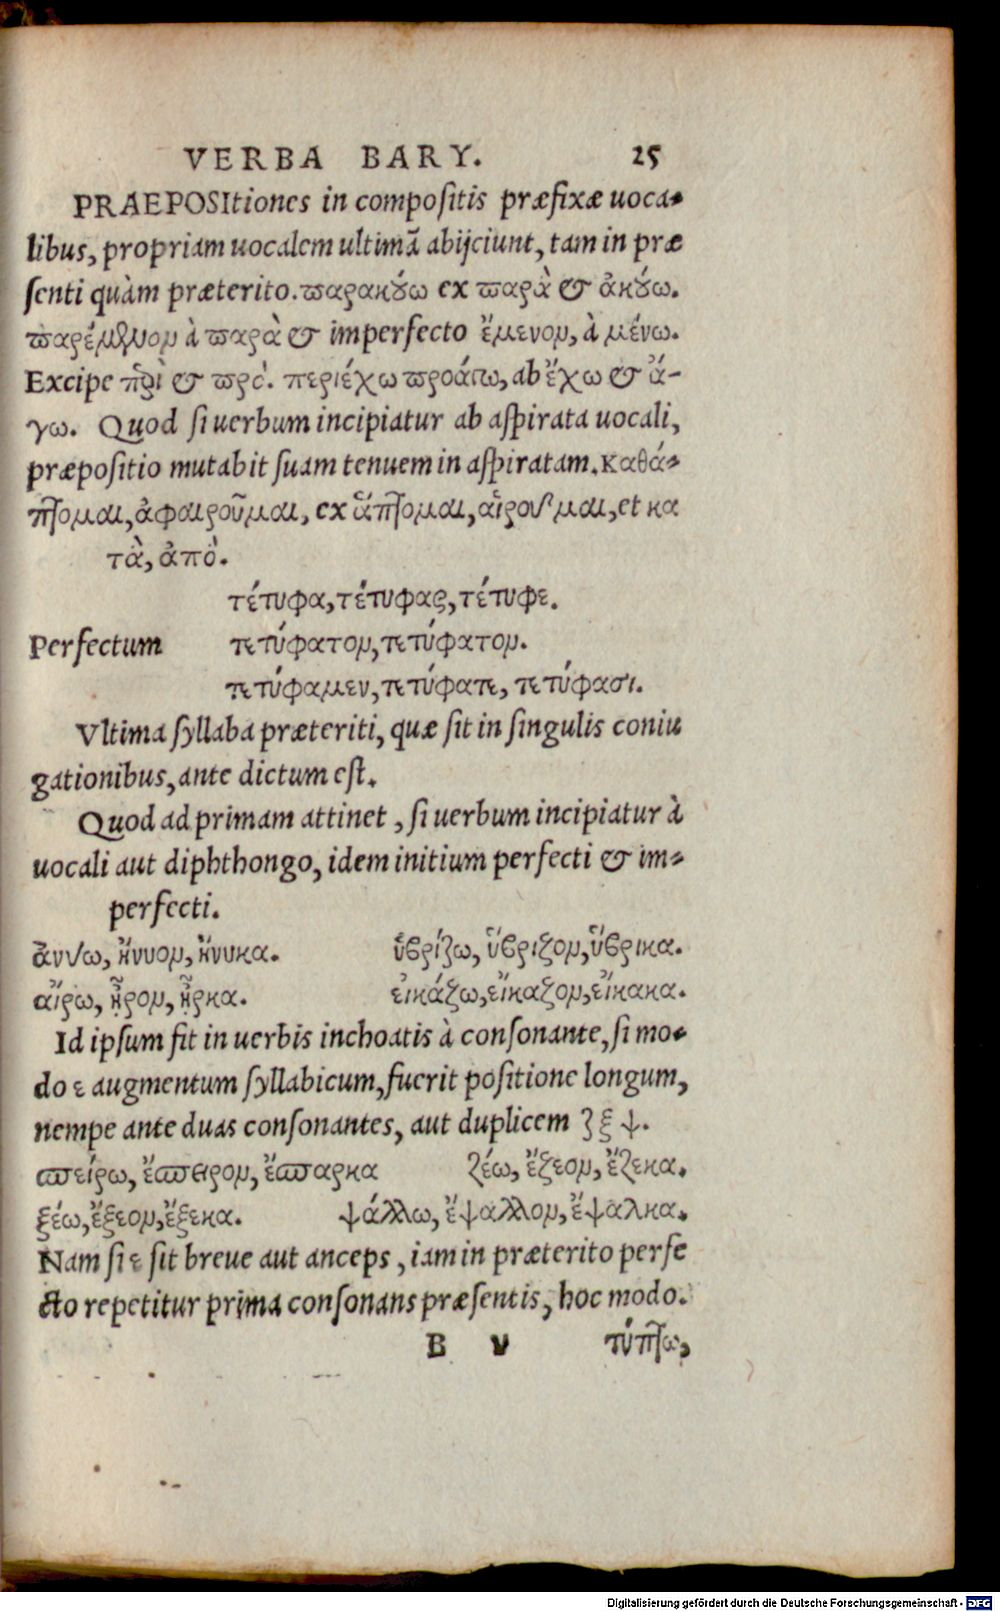 VERBA BARY. 25
PRAEPOSItiones in compositis præfixæ uoca-
libus, propriam uocalem ultimā abijciunt, tam in præ
senti quàm præterito. παρακούω ex παρὰ & ἀκούω.
παρέμενον à παρὰ & imperfecto ἔμενον, à μένω.
Excipe περὶ & πρό. περιέχω προάγω, ab ἔχω & ἄ-
γω. Quod si uerbum incipiatur ab aspirata uocali,
præpositio mutabit suam tenuem in aspiratam. καθά-
πτομαι, ἀφαιροῦμαι, ex ἅπτομαι, αἱροῦμαι, et κα
τὰ, ἀπὸ.
τέτυφα, τέτυφας, τέτυφε.
Perfectum τετύφατον, τετύφατον.
τετύφαμεν, τετύφατε, τετύφασι.
Vltima syllaba præteriti, quæ sit in singulis coniu
gationibus, ante dictum est.
Quod ad primam attinet, si uerbum incipiatur à
uocali aut diphthongo, idem initium perfecti & im-
perfecti.
ἀνύω, ἤνυον, ἤνυκα. ὑβρίζω, ὕβριζον, ὕβρικα.
αἴρω, ᾖρον, ᾖρκα. εἰκάζω, εἴκαζον, εἴκακα.
Id ipsum fit in uerbis inchoatis à consonante, si mo-
do ε augmentum syllabicum, fuerit positione longum,
nempe ante duas consonantes, aut duplicem ζ ξ ψ.
σπείρω, ἔσπειρον, ἔσπαρκα ζέω, ἔζεον, ἔζεκα.
ξέω, ἔξεον, ἔξεκα. ψάλλω, ἔψαλλον, ἔψαλκα.
Nam si ε sit breue aut anceps, iam in præterito perfe
cto repetitur prima consonans præsentis, hoc modo.
B v τύπτω,
Digitalisierung gefördert durch die Deutsche Forschungsgemeinschaft - DFG